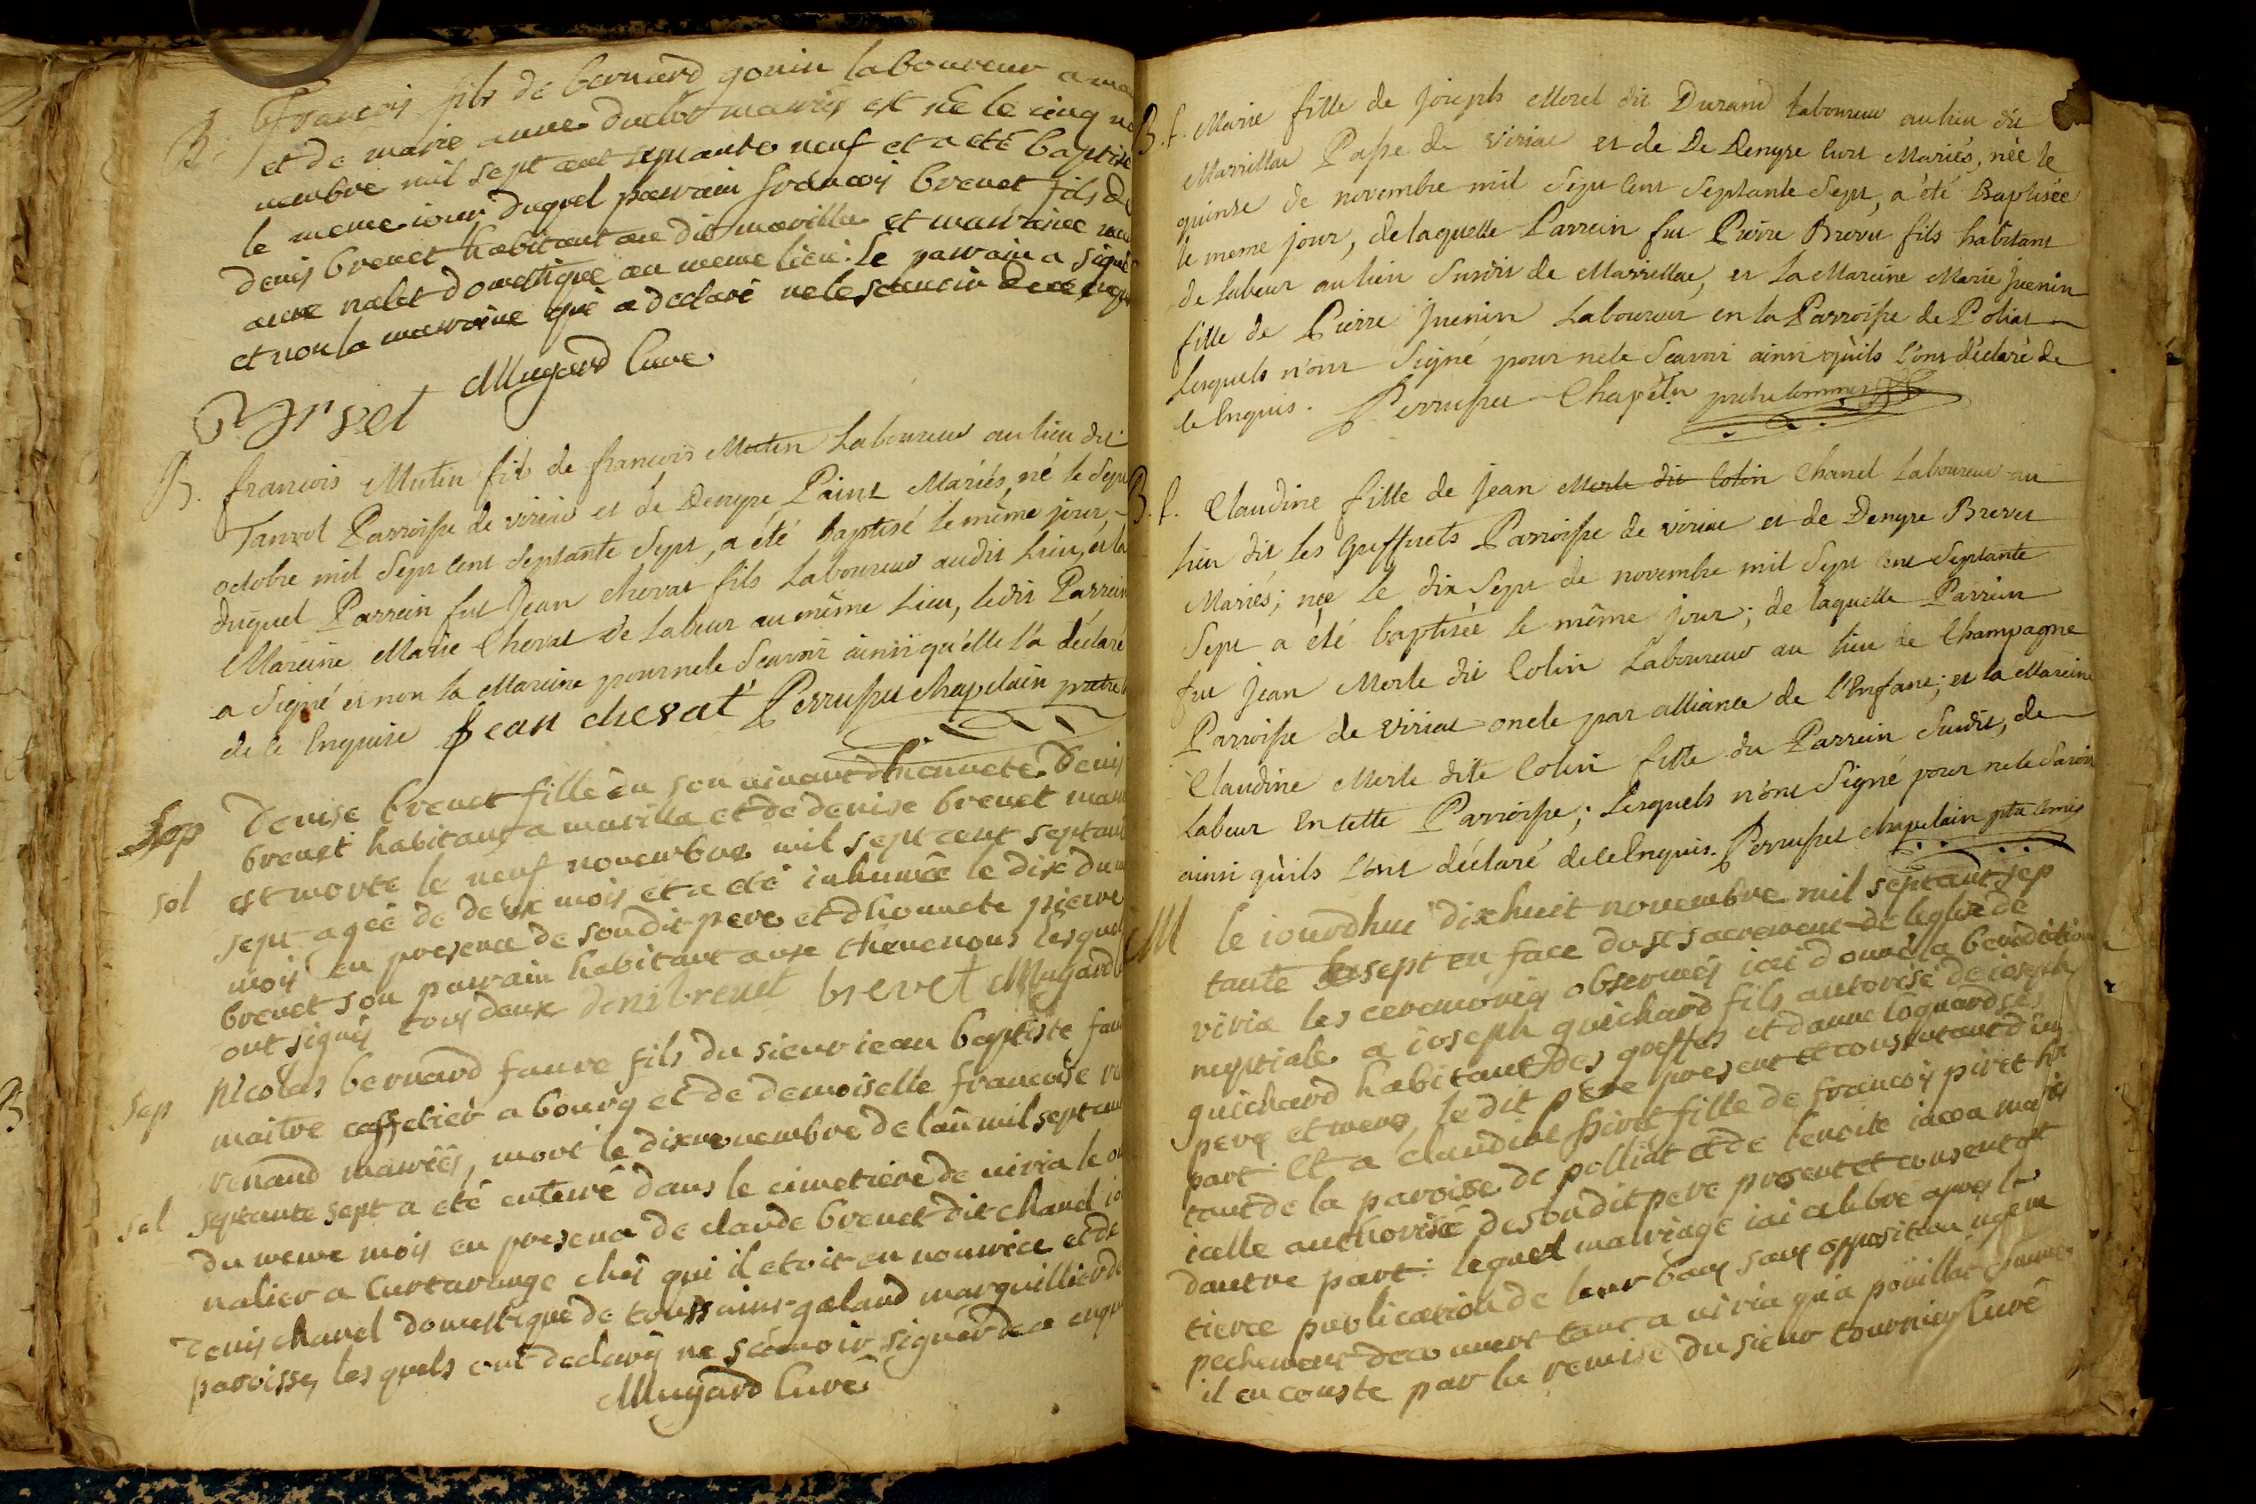 B. francois fils de bernard gonin laboureur a ma
et de marie anne duclos mariés est né le cinq no
nembre mil sept cent septante neuf et a été baptisé
le meme iour duquel parrain francois breuet fils de
denis breuet habitant au dit marillia et marraine
anne nalet domestique au meme lieu. le parrain a signé
et non la marraine qui a declaré ne le scauoir de ce enqui
Brevet Mugard Curé
B. francois Mutin fils de francois Mutin Laboureur au lieu dit
Tanvol Parroisse de viriat et de Denyse Paint Mariés, né le Sept
octobre mil Sept Cent Septante Sept, a été baptisé le même jour,
duquel Parrein fut Jean chevat fils Laboureur audit Lieu, et la
Mareine Marie Chevat de Labeur au même Lieu, ledit Parrein
a Signé et non la Mareine pour ne le Scavoir ainsi qu'elle l'a déclaré
de ce Enquise Jean chevat Perruset chapelain pretre
Sep Denise breuet fille en son uiuant d'honnete Denis
breuet habitant a marillia et de denise breuet marié
sol est morte le neuf nouembre mil sept cent septante
sept agée de deux mois et a été inhumée le dix du
mois en presence de son dit pere et d'honnete pierre
breuet son parrain habitant aux theuenons lesquels
ont signés tous deux deni breuet brevet Mugard
Sep Nicolas bernard faure fils du sieur iean baptiste faur
maitre caffetier a bourg et de demoiselle francoise
renaud mariés, mort le dix nouembre de l'an mil sept cent
sol septante sept a été enterré dans le cimetiere de viria le on
du meme mois en presence de claude breuet dit chanel io
nalier a Curtarange chés qui il etoit en nourrice et de
denis chanel domestique de toussaint galand marguillier de
paroisse, lesquels ont declarés ne scauoir signer de ce enqui
Mugard Curé
B. f. Marie fille de Joseph Morel dit Durand Laboureur au lieu dit
Marrillat Paſse de Viriat et de De Denyse Curt Mariés, née le
quinse de novembre mil Sept Cent Septante Sept, a été Baptisée
le meme jour, de laquelle Parrein fut Pierre Brevet fils habitant
de Labeur au lieu Susdit de Marrillat, et La Mareine Marie Juenin
fille de Pierre Juenin Laboureur en la Parroisse de Poliat
Lesquels n'ont Signé pour ne le Scavoir ainsi qu'ils l'ont déclaré de
ce Enquis. Perruset Chapelain pretre commis
B. f. Claudine fille de Jean Merle dit Colin Chanel Laboureur au
lieu dit les Greffets Parroisse de viriat et de Denyse Brevet
Mariés; née le dix Sept de novembre mil Sept Cent Septante
Sept a été baptisée le même jour; de laquelle Parrein
fut Jean Merle dit Colin Laboureur au lieu de Champagne
Parroisse de Viriat oncle par alliance de l'Enfant; et la Mareine
Claudine Merle dite Colin fille du Parrein Susdit, de
Labeur en cette Parroisse; Lesquels n'ont Signé pour ne le Savoir
ainsi qu'ils l'ont déclaré de ce Enquis. Perruset chapelain ptre comis
M le iourdhui dixhuit nouembre mil septant sep
tante sept en face du st sacrement de leglise de
viria les ceremonies obseruées iai donné la benediction
nuptiale a ioseph guichard fils autorisé de ioseph
guichard habitant des greffes et danne loguard ses
pere et mere, le dit pere present et consentant d'une
part et a claudine piret fille de francois piret
tant de la paroisse de polliat et de benoite iacoa mariés
icelle authorisée de son dit pere present et consentant
dautre part. lequel mariage iai celebré apres la
tierce publication de leur bans sans opposition
pechement decouuert tant a viria qu'a pouillat comme
il en couste par la remise du sieur tournier Curé